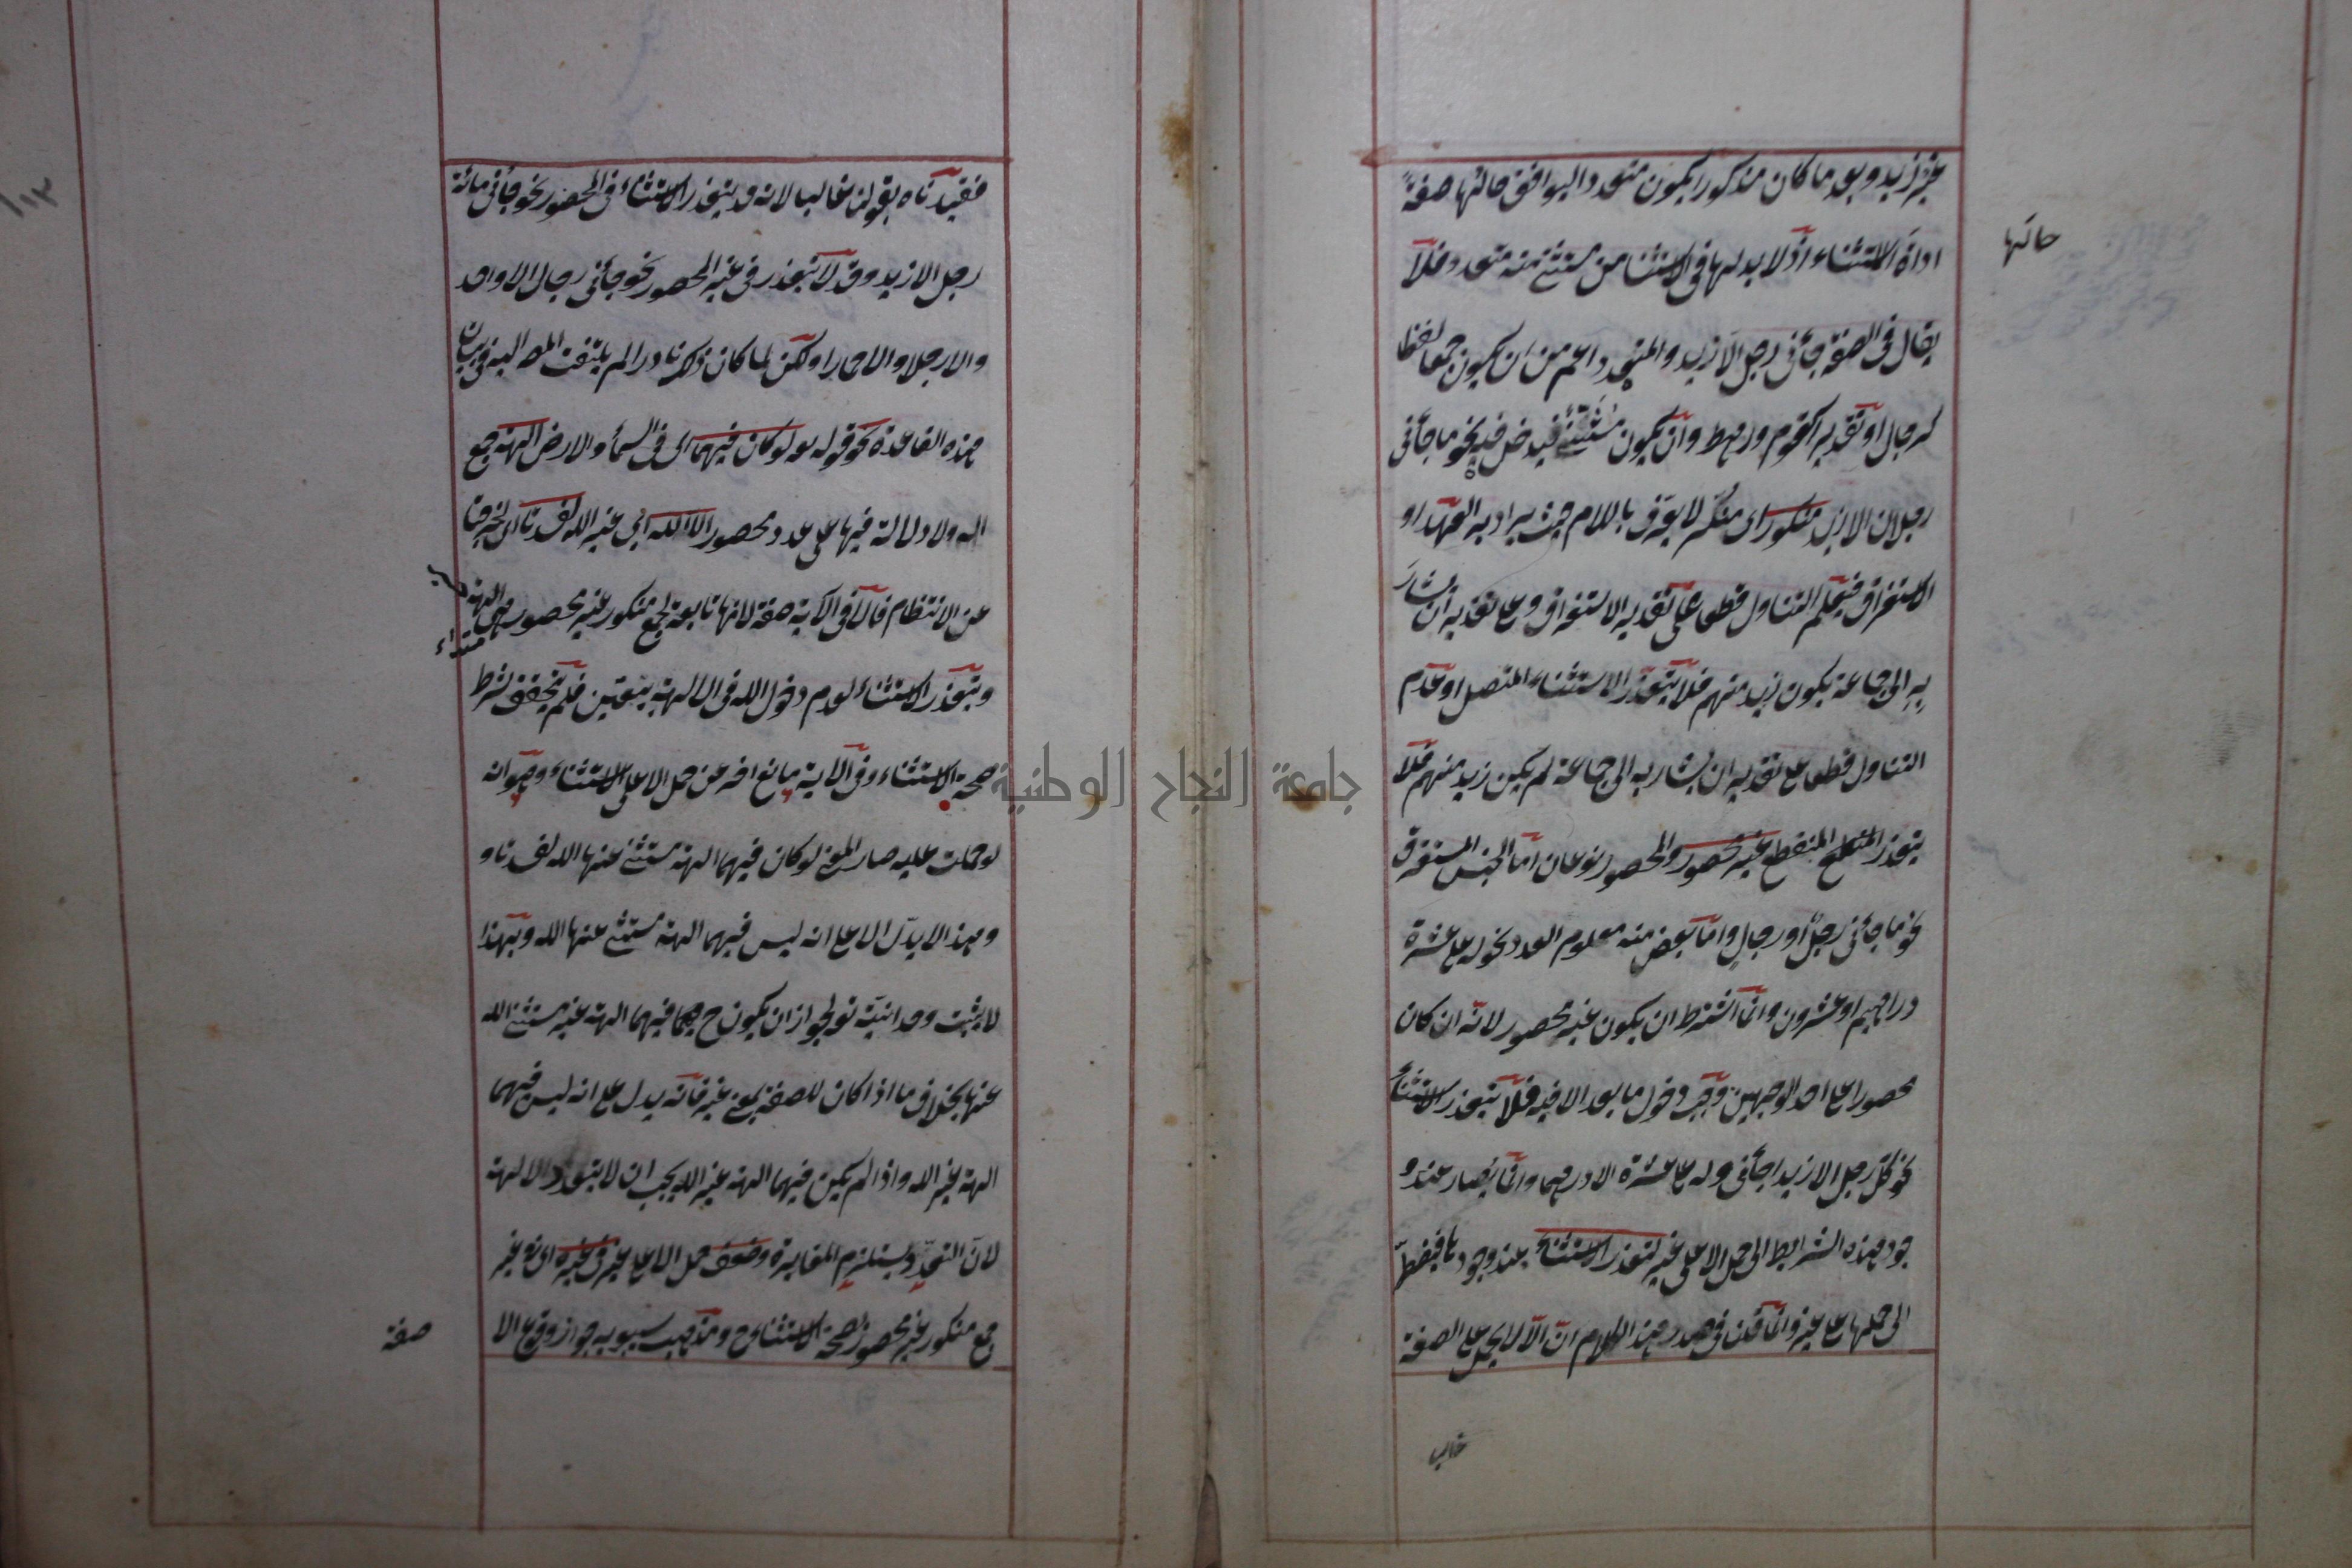 غير زيد وبعد ما كان مذكورا يكون متعددا ليوافق حالها صفة
حالتها
اداة الاستثناء اذ لا بد لها في الاستثنا من مستثنى منه متعدد فلا
يقال في الصفة جأني رجل الا زيد والمتعدد اعم من ان يكون جمعا لفظا
كرجال او تقديرا كقوم ورهط وان يكون مثنى فيدخل فيه نحو ما جأني
رجلان الا زيد منكور اي منكر لا يعرف باللام حيث يراد به العهد او
الاستغراق فيعلم التناول قطعا على تقدير الاستغراق وعلى تقدير ان يشار
به الى جماعة يكون زيد منهم فلا يتعذر الاستثناء المتصل او عدم
التناول قطعا على تقدير ان يشار به الى جماعة لم يكن زيد منهم فلا
يتعذر المنقطع غير محصور والمحصور نوعان اما الجنس المستغرق
نحو ما جأني رجل او رجال واما بعض منه معلوم العدد نحو له علي عشرة
دراهم او عشرون وانما اشترط ان يكون غير محصور لانه ان كان
محصورا على احد الوجهين وجب دخول ما بعد الا فيه فلا يتعذر الاستثناء
نحو كل رجل الا زيدا جأني وله علي عشرة الا درهما وانما يصار عند و
جود هذه الشرايط الى حمل الا على غير لتعذر الاستثناء عند وجودها فيضطر
الى حملها على غير وانما قلنا في صدر هذا الكلام ان الا لا يحمل على الصفة
غالبا
فقيدناه بقولنا غالبا لانه قد يتعذر الاستثناء في المحصور نحو جأني مائة
رجل الا زيد وقد لا يتعذر في غير المحصور نحو جأني رجال الا واحد
والا رجلا والا حمارا ولكن لما كان ذلك نادرا لم يلتفت المص اليه في بيان
هذه القاعدة نحو قوله تعالى لو كان فيهما اي في السمأ والارض الهة جمع
اله ولا دلالة فيها على عدد محصور الا الله اي غير الله لفسدتا اي لخرجتا
عن الانتظام فالا في الآية صفة لانها تابعة لجمع منكور غير محصور هي الهة
ويتعذر الاستثناء لعدم دخول الله في الالهة بيقين فلم يتحقق شرط
صحة الاستثناء وفي الآية مانع اخر عن حمل الا على الاستثناء وهو انه
لو حملت عليه صار المعنى لو كان فيهما الهة مستثنى عنها الله لفسدتا و
هذا لا يدل الا على انه ليس فيهما الهة مستثنى عنها الله وبهذا
لا يثبت وحدانيته تع لجواز ان يكون ح فيهما الهة غير مستثنى الله
عنها بخلاف ما اذا كان للصفة بمعنى غير فانه يدل على انه ليس فيهما
الهة غير الله واذا لم يكن فيهما الهة غير الله يجب ان لا يتعدد الالهة
لان التعدد يستلزم المغايرة وضعف حمل الا على غير في غيره اي في غير
جمع منكور غير محصور لصحة الاستثناء ح ومذهب سيبويه جواز وقوع الا
صفة
جامعة النجاح الوطنية